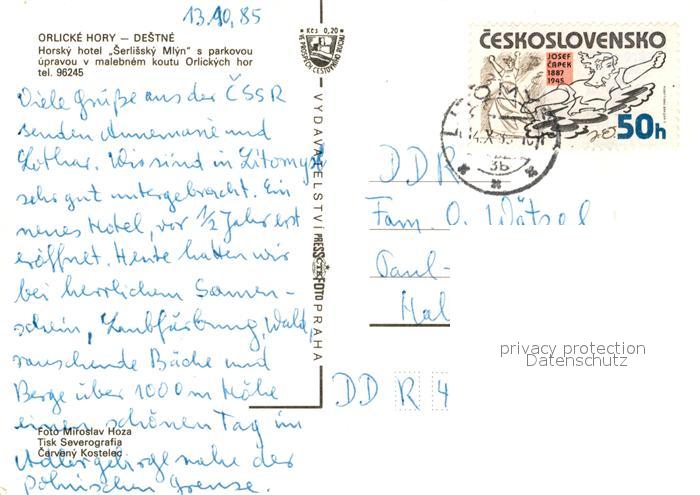 13.10.85
ORLICKÉ HORY — DEŠTNÉ
Horský hotel „Šerlišský Mlýn" s parkovou
úpravou v malebném koutu Orlických hor
tel. 96245
Viele Grüße aus der ČSSR
senden Annemarie und
Lothar. Wir sind in Litomyšl
sehr gut untergebracht. Ein
neues Hotel, vor 1/2 Jahr erst
eröffnet. Heute hatten wir
bei herrlichem Sonnen-
schein, Laubfärbung, Wald,
rauschende Bäche und
Berge über 1000 m Höhe
einen schönen Tag im
Adlergebirge nahe der
Polnischen Grenze.
Foto Miroslav Hoza
Tisk Severografia
Červený Kostelec
Kčs 0,20
VE PROSPĚCH CESTOVNÍHO RUCHU
VYDAVATELSTVÍ PRESSFOTO PRAHA
ČESKOSLOVENSKO
JOSEF
ČAPEK
1887
1945
50h
3b
DDR
Fam. O. Wätzel
Paul-
Hal
DDR 4
privacy protection
Datenschutz